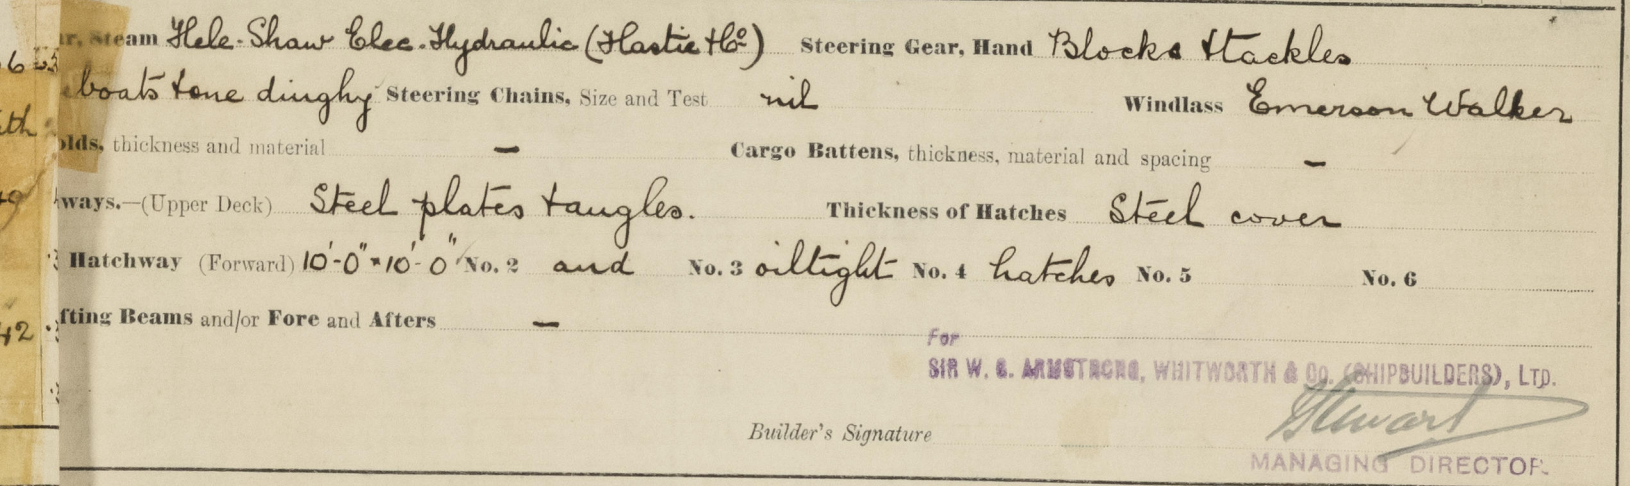 Steam Hele-Shaw Elec. Hydraulic (Hastie & Co) Steering Gear, Hand Blocks & tackles
boats & one dinghy Steering Chains, Size and Test nil Windlass Emerson Walker
olds, thickness and material — Cargo Battens, thickness, material and spacing —
ways.—(Upper Deck) Steel plates & angles. Thickness of Hatches Steel cover
Hatchway (Forward) 10'-0" × 10'-0" No. 2 and No. 3 oiltight No. 4 hatches No. 5 No. 6
fting Beams and/or Fore and Afters —
For
SIR W. G. ARMSTRONG, WHITWORTH & CO. (SHIPBUILDERS), LTD.
Stewart
Builder's Signature
MANAGING DIRECTOR.